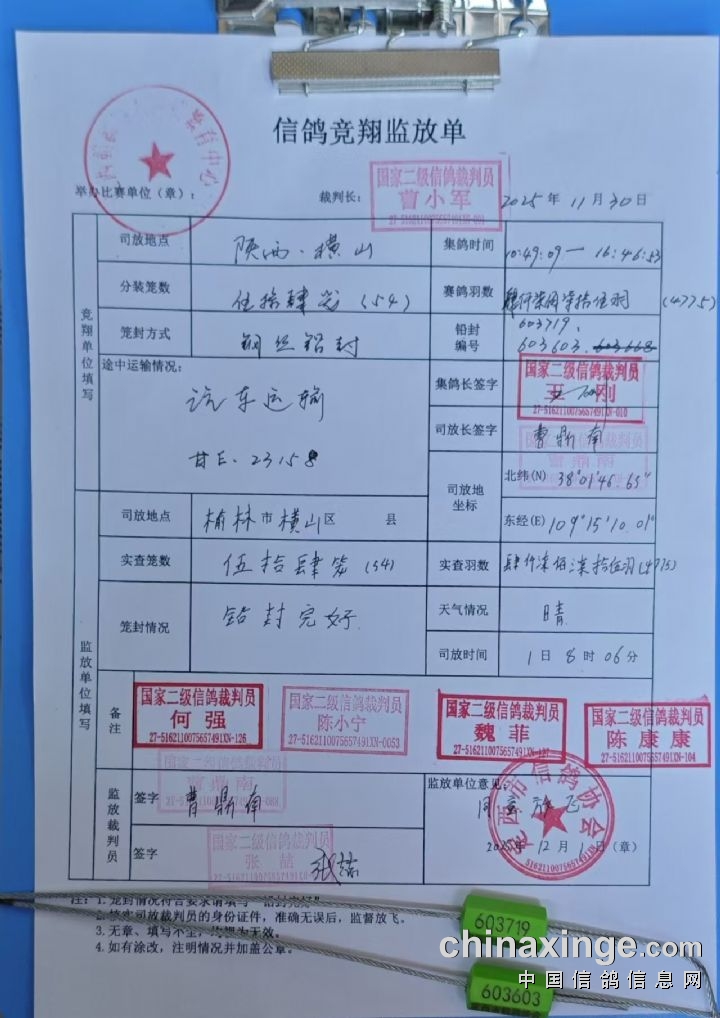 信鸽竞翔监放单
体育中心
举办比赛单位（章）：
裁判长：
国家二级信鸽裁判员
曹小军
2025年11月30日
竞翔单位填写
司放地点
陕西·横山
集鸽时间
10:49:09—16:46:53
分装笼数
伍拾肆笼（54）
赛鸽羽数
肆仟柒佰柒拾伍羽（4775）
笼封方式
钢丝铅封
铅封编号
603719.
603603.
途中运输情况：
汽车运输
甘E·23158
集鸽长签字
国家二级信鸽裁判员
王刚
27-5162110075657491XN-010
司放长签字
曹鼎南
司放地坐标
北纬(N) 38°01′46.65″
东经(E) 109°15′10.01″
监放单位填写
司放地点
榆林市横山区 县
实查笼数
伍拾肆笼（54）
实查羽数
肆仟柒佰柒拾伍羽(4775)
笼封情况
铅封完好
天气情况
晴
司放时间
1日8时06分
备注
国家二级信鸽裁判员
何强
27-5162110075657491XN-126
国家二级信鸽裁判员
陈小宁
27-5162110075657491XN-0053
国家二级信鸽裁判员
魏菲
国家二级信鸽裁判员
陈康康
27-5162110075657491XN-104
国家二级信鸽裁判员
曹鼎南
监放裁判员
签字
曹鼎南
签字
国家二级信鸽裁判员
张喆
张喆
监放单位意见：
同意放飞
市信鸽协会
5162110075657491
2025年12月1日（章）
注：1.笼封情况符合要求请填写“铅封完好”
司放裁判员的身份证件，准确无误后，监督放飞。
3.无章、填写不全，均视为无效。
4.如有涂改，注明情况并加盖公章。
603719
603603
chinaxinge.com
中国信鸽信息网